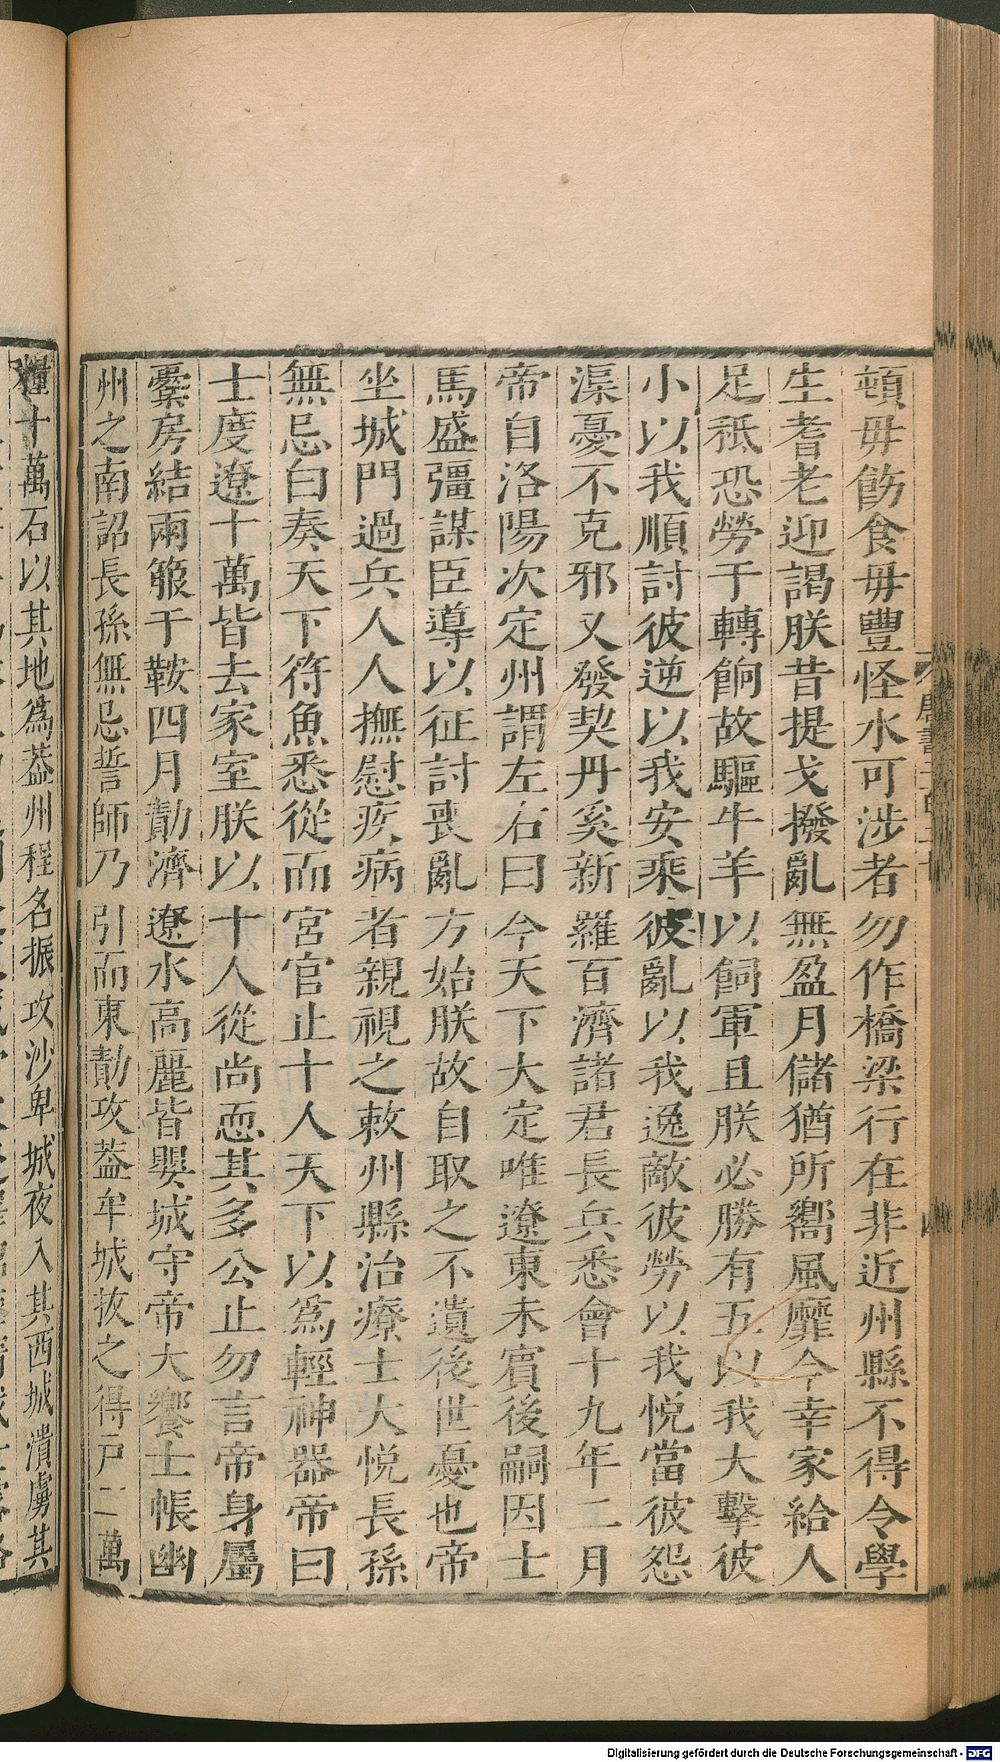 頓毋飭食毋豐怪水可涉者勿作橋梁行在非近州縣不得令學
生耆老迎謁朕昔提戈撥亂無盈月儲猶所嚮風靡今幸家給人
足秪恐勞于轉餉故驅牛羊以飼軍且朕必勝有五以我大擊彼
小以我順討彼逆以我安乘彼亂以我逸敵彼勞以我悅當彼怨
渠憂不克邪又發契丹奚新羅百濟諸君長兵悉會十九年二月
帝自洛陽次定州謂左右曰今天下大定唯遼東未賓後嗣因士
馬盛彊謀臣導以征討喪亂方始朕故自取之不遺後世憂也帝
坐城門過兵人人撫慰疾病者親視之敕州縣治療士大悅長孫
無忌白奏天下符魚悉從而宮官止十人天下以爲輕神器帝曰
士度遼十萬皆去家室朕以十人從尚恧其多公止勿言帝身屬
櫜房結兩箙于鞍四月勣濟遼水高麗皆嬰城守帝大饗士帳幽
州之南詔長孫無忌誓師乃引而東勣攻葢牟城拔之得戸二萬
糧十萬石以其地爲葢州程名振攻沙卑城夜入其西城潰虜其
Digitalisierung gefördert durch die Deutsche Forschungsgemeinschaft - DFG